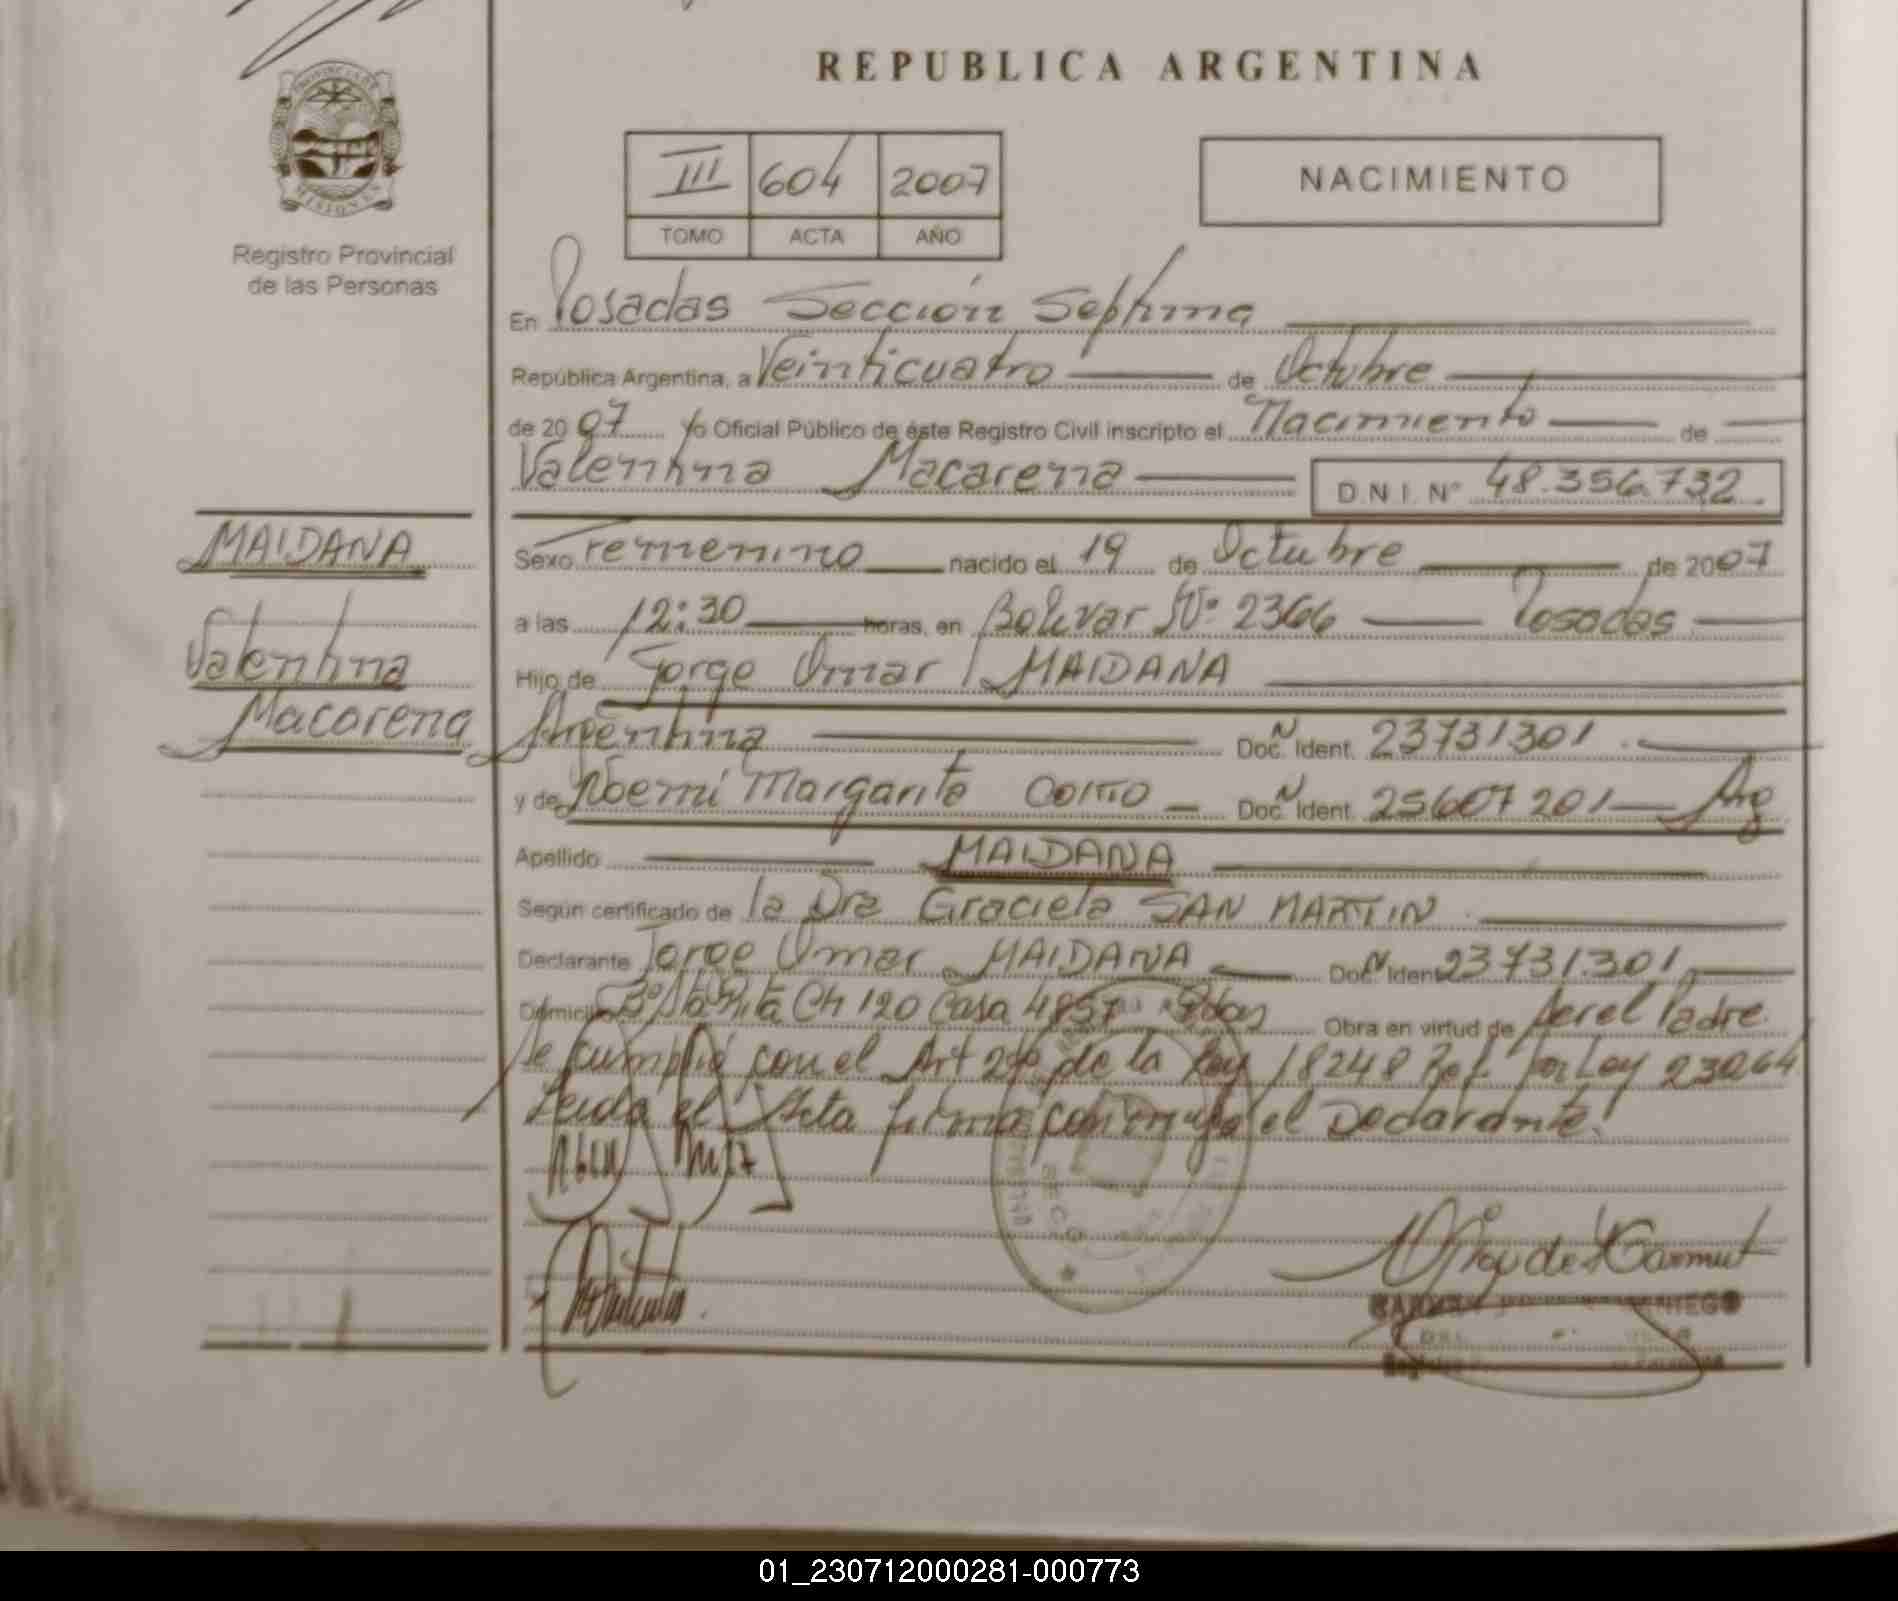 REPUBLICA ARGENTINA
III 604 2007
TOMO ACTA AÑO
NACIMIENTO
PROVINCIA DE
MISIONES
Registro Provincial
de las Personas
En Posadas Sección Septima
República Argentina, a Veinticuatro de Octubre
de 2007 yo Oficial Público de éste Registro Civil inscripto el Nacimiento de
Valentina Macarena D.N.I. Nº 48.356.732
MAIDANA
Valentina
Macarena
Sexo Femenino nacido el 19 de Octubre de 2007
a las 12:30 horas, en Bolivar Nº 2366 Posadas
Hijo de Jorge Omar MAIDANA
Argentina Doc. N Ident. 23731301
y de Noemi Margarita Doc. N Ident. 25607201 Arg
Apellido MAIDANA
Según certificado de la Dra Graciela SAN MARTIN
Declarante Jorge Omar MAIDANA Doc. N Ident 23731.301
Domicilio Bº Sta Rita Ch 120 Casa 4857 Pdas Obra en virtud de ser el Padre.
Se cumplió con el Art 2do de la Ley 18248 Ref. por Ley 23264
Leida el Acta firma conmigo el Declarante.
01_230712000281-000773